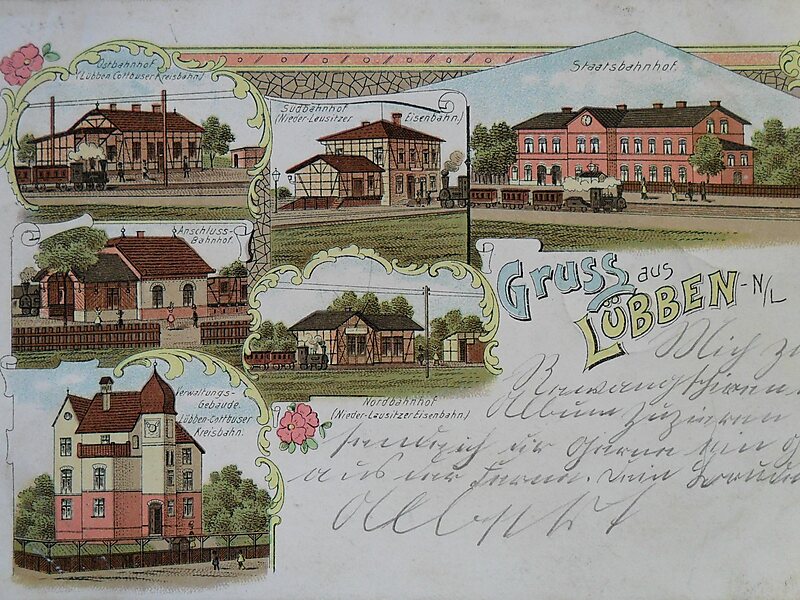 Ostbahnhof
(Lübben Cottbuser Kreisbahn)
Südbahnhof
(Nieder-Lausitzer Eisenbahn.)
Staatsbahnhof.
Anschluss-
Bahnhof.
Nordbahnhof
(Nieder-Lausitzer Eisenbahn.)
Verwaltungs-
Gebäude.
Lübben-Cottbuser
Kreisbahn.
Gruss aus
Lübben-N/L
Mich zu
Album zuzieren
aus der Ferne. Dein Bruder